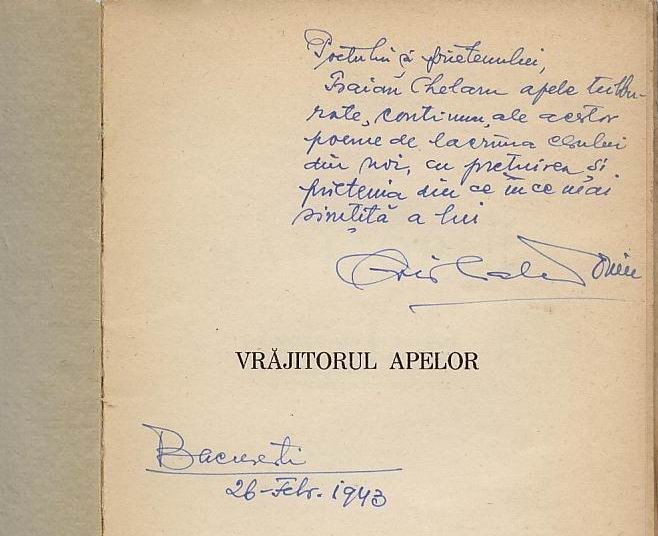 Poetului și prietenului,
Traian Chelariu apele tulbu-
rate, continuu, ale acestor
poeme de lacrima cerului
din noi, cu prețuirea și
prietenia din ce în ce mai
simțită a lui
VRĂJITORUL APELOR
București
26-Febr. 1943